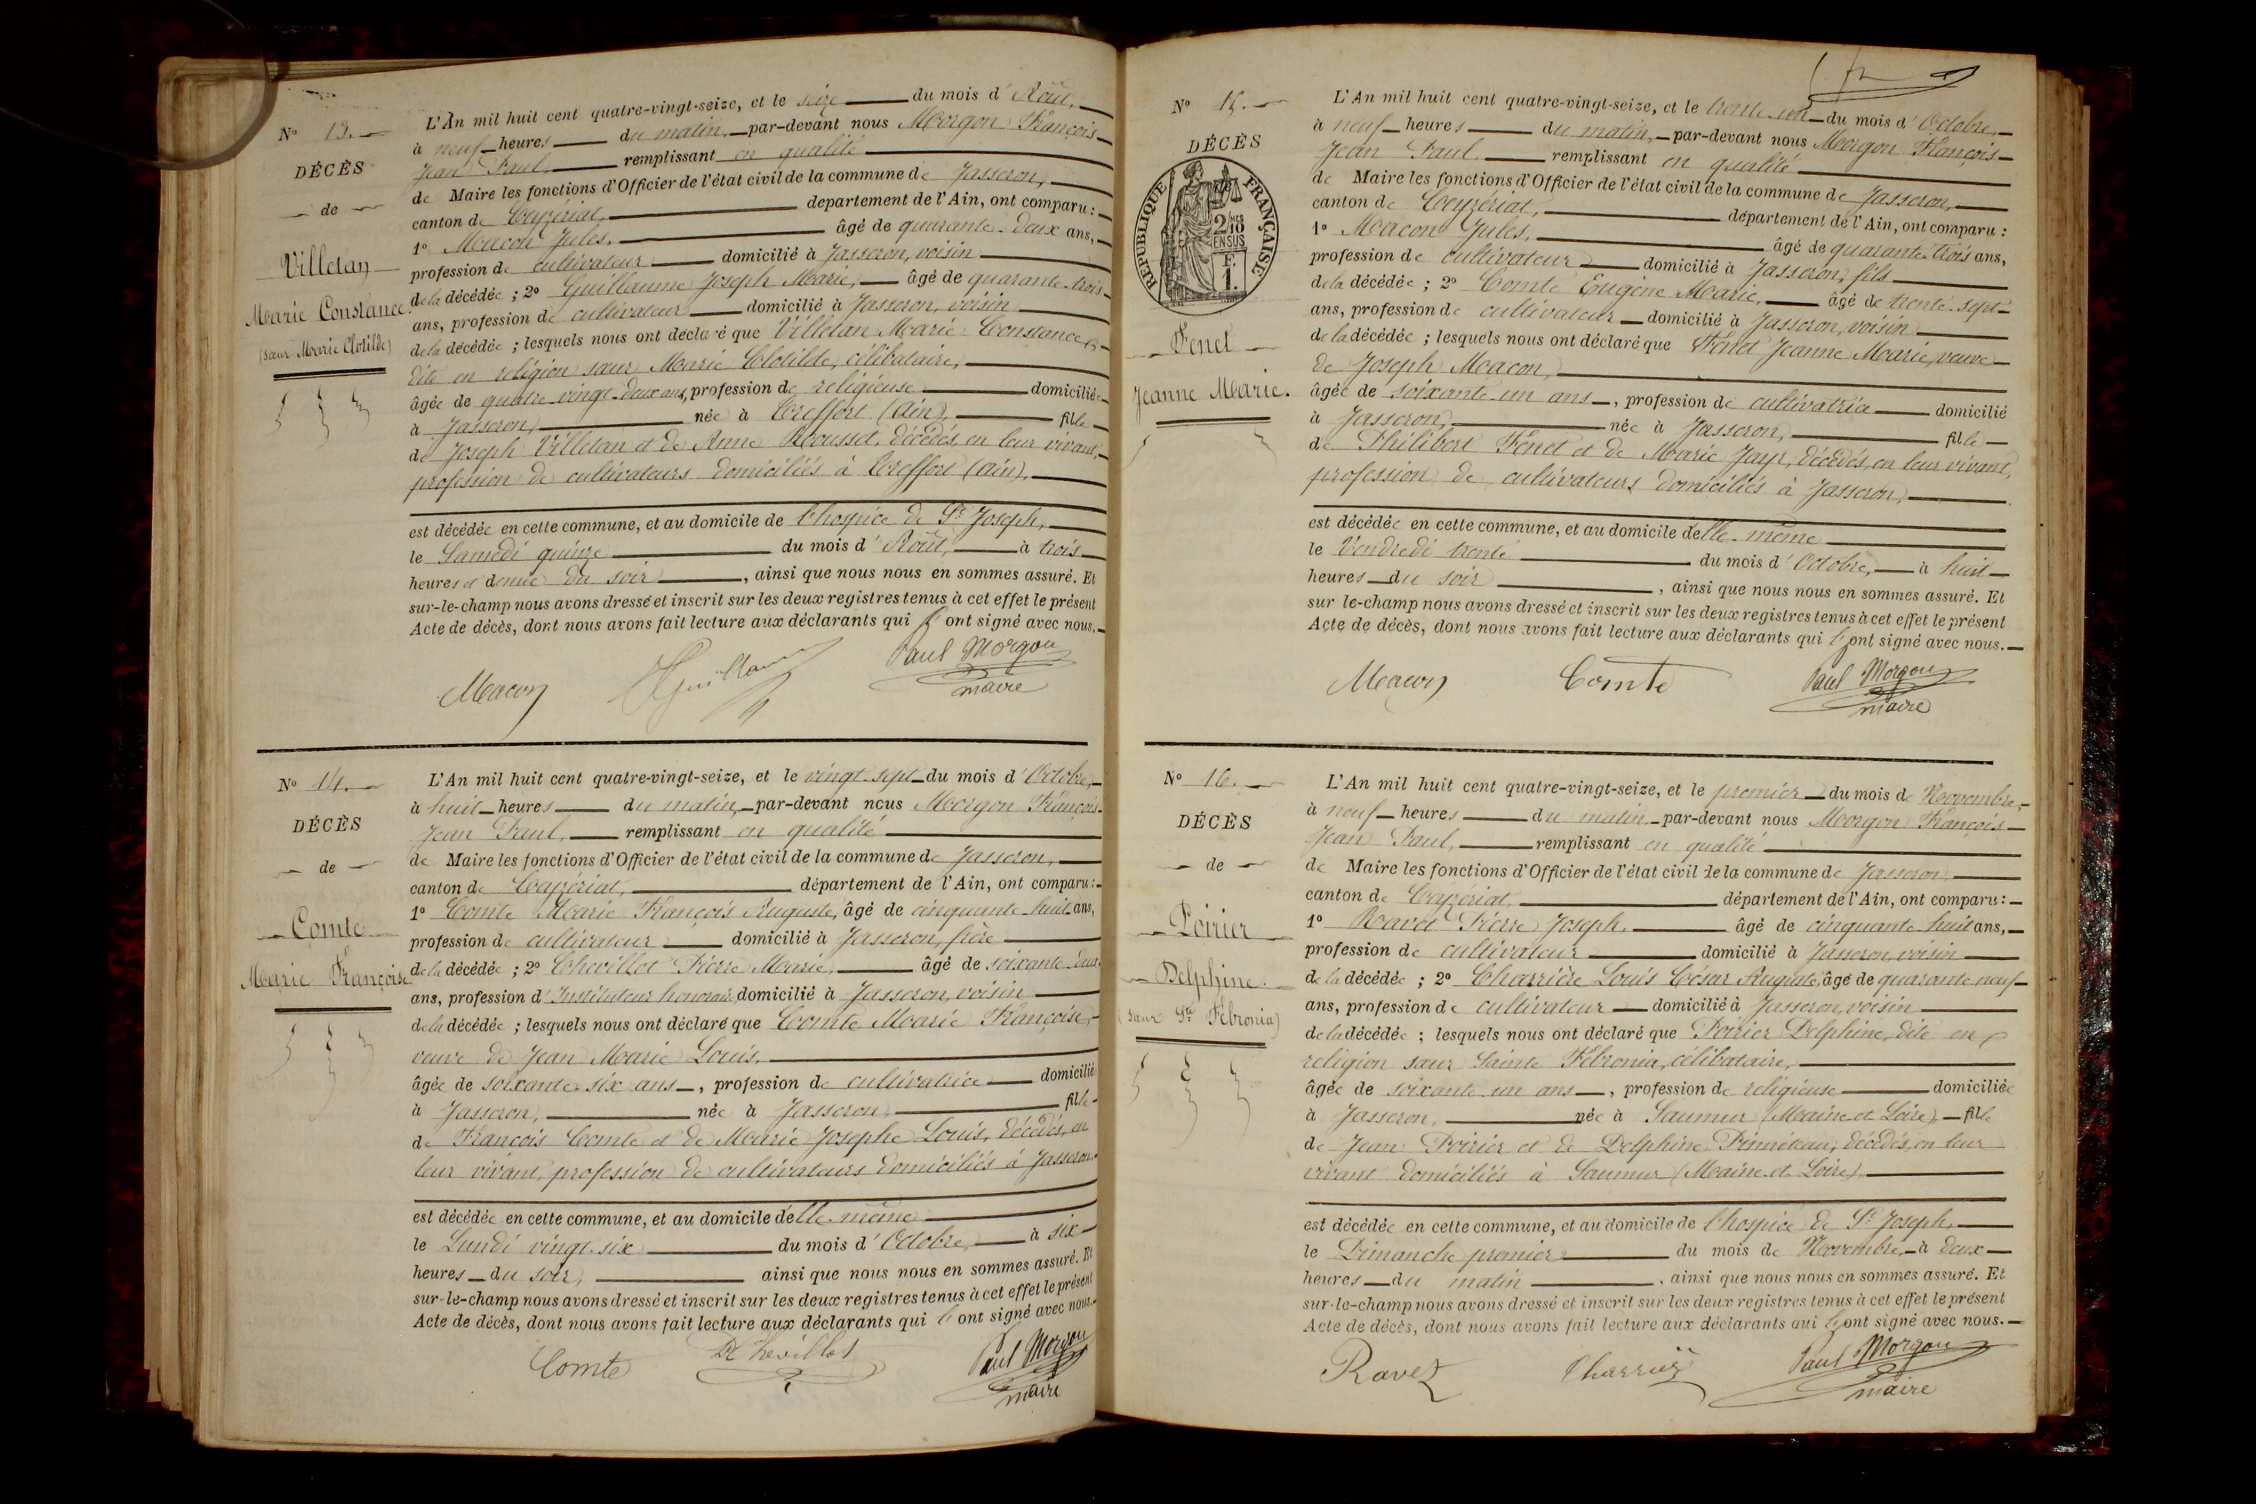 N° 13.
DÉCÈS
de
Villetan
Marie Constance
(sœur Marie Clotilde)
L'An mil huit cent quatre-vingt-seize, et le seize du mois d'Août,
à neuf heures du matin, par-devant nous Morgon François
Jean Paul, remplissant en qualité
de Maire les fonctions d'Officier de l'état civil de la commune de Jasseron,
canton de Ceyzériat, département de l'Ain, ont comparu :
1° Macon Jules, âgé de quarante-deux ans,
profession de cultivateur domicilié à Jasseron, voisin
de la décédée ; 2° Guillaume Joseph Marie, âgé de quarante-trois
ans, profession de cultivateur domicilié à Jasseron, voisin
de la décédée ; lesquels nous ont déclaré que Villetan Marie Constance,
dite en religion sœur Marie Clotilde, célibataire,
âgée de quatre-vingt-deux ans, profession de religieuse domiciliée
à Jasseron, née à Treffort (Ain), fille
de Joseph Villetan et de Anne Rousset, décédés, en leur vivant,
profession de cultivateurs domiciliés à Treffort (Ain),
est décédée en cette commune, et au domicile de l'hospice de St Joseph,
le Samedi quinze du mois d'Août, à trois
heures et demie du soir, ainsi que nous nous en sommes assuré. Et
sur-le-champ nous avons dressé et inscrit sur les deux registres tenus à cet effet le présent
Acte de décès, dont nous avons fait lecture aux déclarants qui ont signé avec nous.
Macon Guillaume Paul Morgon
maire
N° 14.
DÉCÈS
de
Comte
Marie Françoise
L'An mil huit cent quatre-vingt-seize, et le vingt-sept du mois d'Octobre,
à huit heures du matin, par-devant nous Morgon François
Jean Paul, remplissant en qualité
de Maire les fonctions d'Officier de l'état civil de la commune de Jasseron,
canton de Ceyzériat, département de l'Ain, ont comparu :
1° Comte Marie François Auguste, âgé de cinquante-huit ans,
profession de cultivateur domicilié à Jasseron, frère
de la décédée ; 2° Chevillot Pierre Marie, âgé de soixante-deux
ans, profession d'Instituteur honoraire, domicilié à Jasseron, voisin
de la décédée ; lesquels nous ont déclaré que Comte Marie Françoise,
veuve de Jean Marie Louis,
âgée de soixante-six ans, profession de cultivatrice domicilié
à Jasseron, née à Jasseron, fille
de François Comte et de Marie Josephe Louis, décédés, en
leur vivant, profession de cultivateurs domiciliés à Jasseron.
est décédée en cette commune, et au domicile d'elle-même
le Lundi vingt-six du mois d'Octobre, à six
heures du soir, ainsi que nous nous en sommes assuré. Et
sur-le-champ nous avons dressé et inscrit sur les deux registres tenus à cet effet le présent
Acte de décès, dont nous avons fait lecture aux déclarants qui ont signé avec nous.
Comte Chevillot Paul Morgon
maire
N° 15.
DÉCÈS
RÉPUBLIQUE FRANÇAISE
2/10
EN SUS
F.
1.
Fenet
Jeanne Marie.
L'An mil huit cent quatre-vingt-seize, et le trente-un du mois d'Octobre,
à neuf heures du matin, par-devant nous Morgon François
Jean Paul, remplissant en qualité
de Maire les fonctions d'Officier de l'état civil de la commune de Jasseron,
canton de Ceyzériat, département de l'Ain, ont comparu :
1° Macon Jules, âgé de quarante-trois ans,
profession de cultivateur domicilié à Jasseron, fils
de la décédée ; 2° Comte Eugène Marie, âgé de trente-sept
ans, profession de cultivateur domicilié à Jasseron, voisin
de la décédée ; lesquels nous ont déclaré que Fénet Jeanne Marie, veuve
de Joseph Macon,
âgée de soixante-un ans, profession de cultivatrice domicilié
à Jasseron, née à Jasseron, fille
de Philibert Fénet et de Marie Jayr, décédés, en leur vivant,
profession de cultivateurs domiciliés à Jasseron,
est décédée en cette commune, et au domicile d'elle-même
le Vendredi trente du mois d'Octobre, à huit
heures du soir, ainsi que nous nous en sommes assuré. Et
sur le-champ nous avons dressé et inscrit sur les deux registres tenus à cet effet le présent
Acte de décès, dont nous avons fait lecture aux déclarants qui ont signé avec nous.
Macon Comte Paul Morgon
maire
N° 16.
DÉCÈS
de
Poirier
Delphine
(sœur Ste Fébronia)
L'An mil huit cent quatre-vingt-seize, et le premier du mois de Novembre,
à neuf heures du matin, par-devant nous Morgon François
Jean Paul, remplissant en qualité
de Maire les fonctions d'Officier de l'état civil de la commune de Jasseron
canton de Ceyzériat, département de l'Ain, ont comparu :
1° Ravet Pierre Joseph, âgé de cinquante-huit ans,
profession de cultivateur domicilié à Jasseron, voisin
de la décédée ; 2° Charrière Louis César Auguste, âgé de quarante-neuf
ans, profession de cultivateur domicilié à Jasseron, voisin
de la décédée ; lesquels nous ont déclaré que Poirier Delphine, dite en
religion sœur Sainte Fébronia, célibataire,
âgée de soixante-un ans, profession de religieuse domiciliée
à Jasseron, née à Saumur (Maine et Loire), fille
de Jean Poirier et de Delphine décédés, en leur
vivant domiciliés à Saumur (Maine et Loire),
est décédée en cette commune, et au domicile de l'hospice de St Joseph,
le Dimanche premier du mois de Novembre, à deux
heures du matin, ainsi que nous nous en sommes assuré. Et
sur-le-champ nous avons dressé et inscrit sur les deux registres tenus à cet effet le présent
Acte de décès, dont nous avons fait lecture aux déclarants qui ont signé avec nous.
Ravet Charrière Paul Morgon
maire